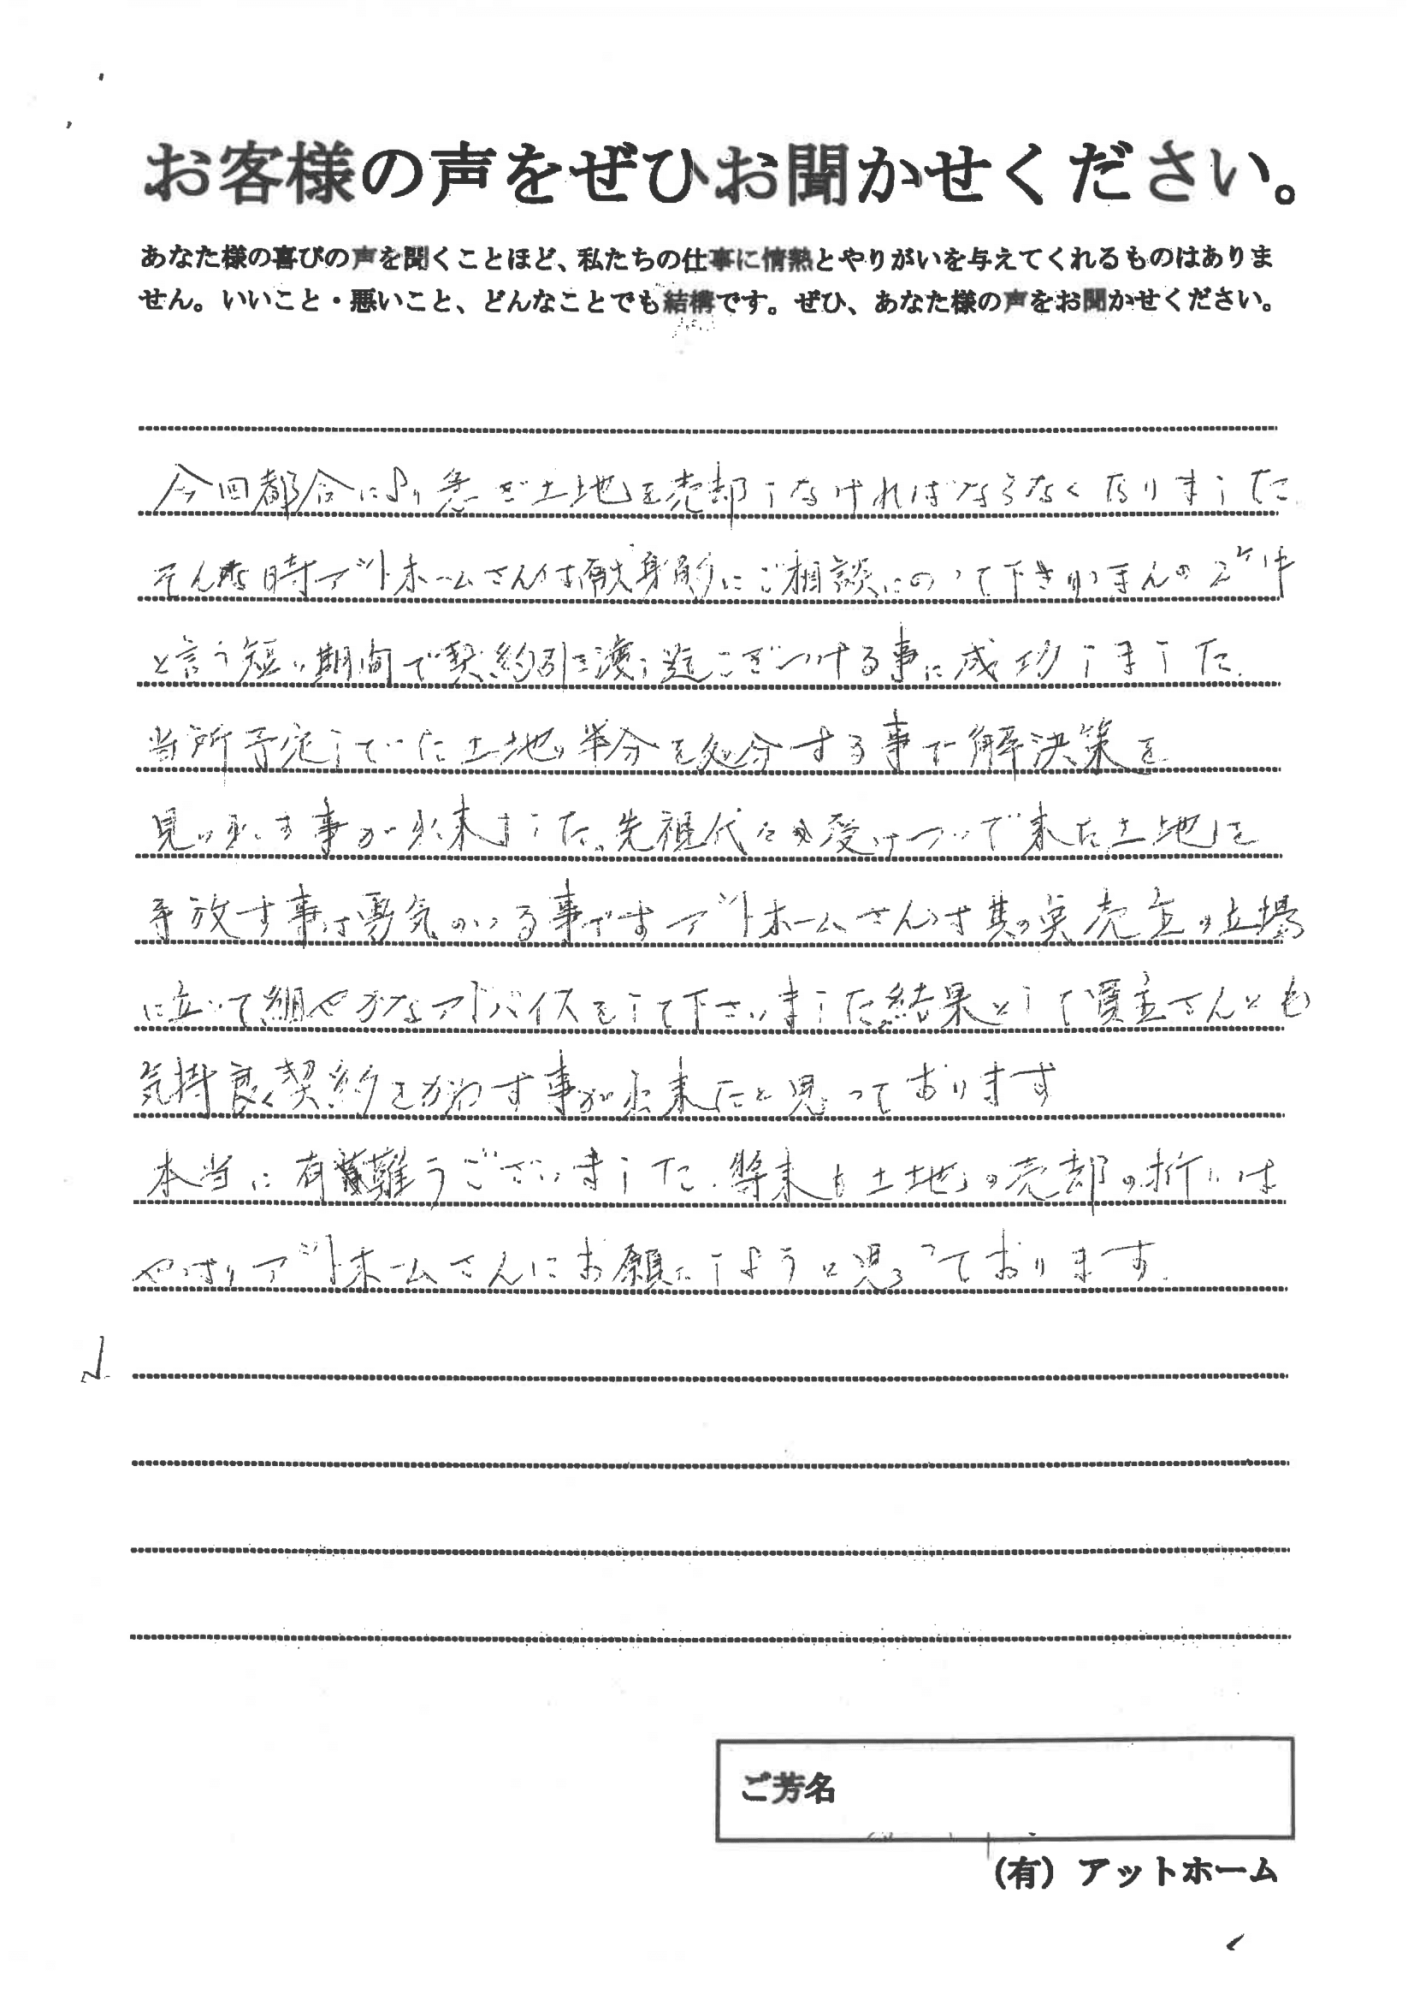 お客様の声をぜひお聞かせください。
あなた様の喜びの声を聞くことほど、私たちの仕事に情熱とやりがいを与えてくれるものはありま
せん。いいこと・悪いこと、どんなことでも結構です。ぜひ、あなた様の声をお聞かせください。
今回都合により急ぎ土地を売却しなければならなくなりました
そんな時アットホームさんは献身的にご相談にのって下さり
と言う短い期間で契約引き渡し迄こぎつける事に成功しました
当所予定していた土地半分を処分する事で解決策を
見い出す事が出来ました。先祖代々受けついで来た土地を
手放す事は勇気のいる事ですアットホームさんは其の実売主の立場
に立って細やかなアドバイスをして下さいました。結果として買主さんとも
気持良く契約をかわす事が出来たと思っております
本当に有難うございました。将来も土地の売却の折には
やはりアットホームさんにお願いしようと思っております。
ご芳名
（有）アットホーム